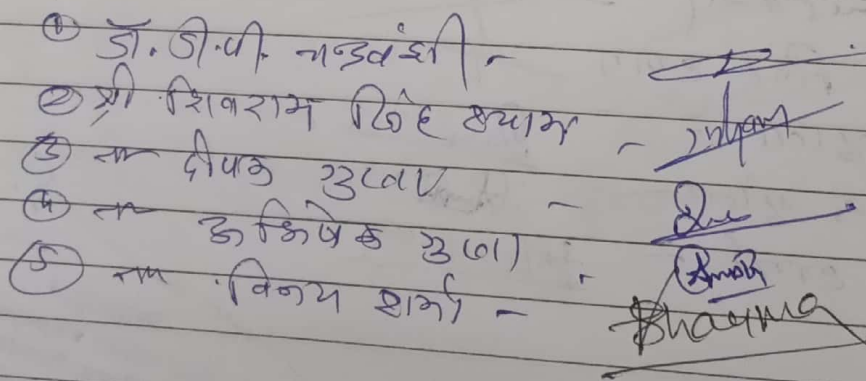 ① डॉ. डी.पी. चन्द्रवंशी -
② श्री शिवराम सिंह श्याम -
③ " दीपक गुप्ता -
④ " अभिषेक गुप्ता -
⑤ " विनय शर्मा - Sharma